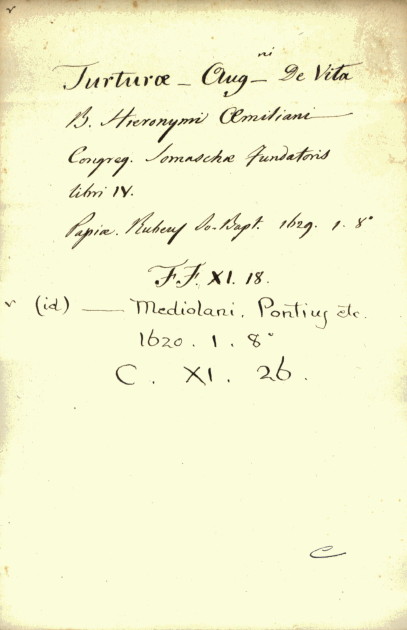 v
Turturæ – Aug–ni De Vita
B. Hieronymi Æmiliani
Congreg. Somaschæ Fundatoris
libri IV.
Papiæ. Rubeus Jo. Bapt. 1629. 1. 8°
FF. XI. 18.
v (id) — Mediolani. Pontius etc.
1620. 1. 8°
C. XI. 26.
C